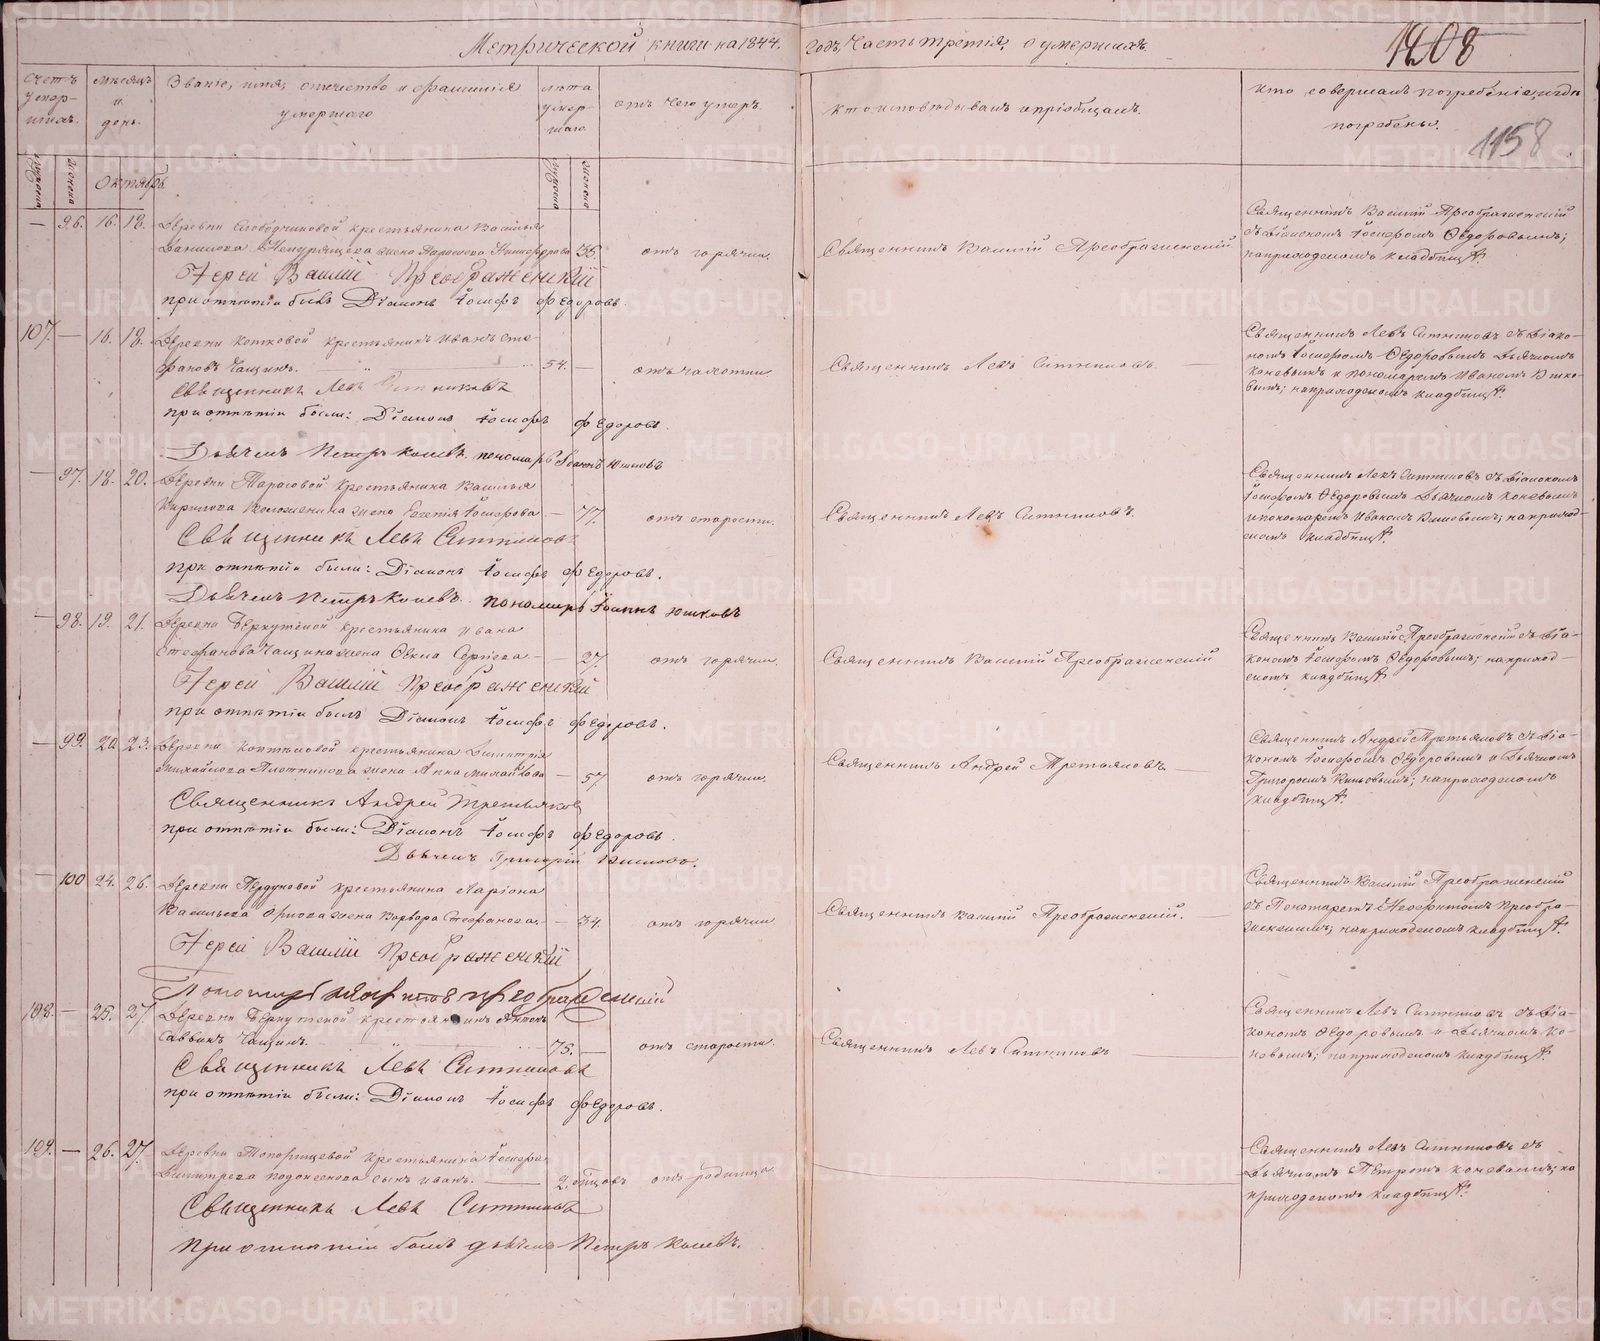 Метрической книги на 1844. годъ, Часть третія, о умершихъ.
1208
1158
Счетъ умер-шихъ.
Мѣсяцъ и день.
Званіе, имя, отчество и фамилія умершаго
лѣта умер-шаго.
отъ чего умеръ.
кто исповѣдывалъ и пріобщалъ.
кто совершалъ погребеніе, и гдѣ погребены.
Октябрь
— 96. 16. 18. Деревни Слободчиковой крестьянина Василья
жена 35. отъ горячки. Священникъ Василій Преображенскій
Священникъ Василій Преображенскій
съ Діакономъ Іосифомъ Ѳедоровымъ;
на приходскомъ кладбищѣ.
Іерей Василій Преображенскій
при отпѣтіи былъ Діаконъ Іосифъ Федоровъ.
107. — 16. 18. Деревни Котковой крестьянинъ Иванъ Сте-
фановъ Чащинъ. 54. — отъ чахотки Священникъ Левъ Ситниковъ.
Священникъ Левъ Ситниковъ съ Діако-
номъ Іосифомъ Ѳедоровымъ Дьячкомъ
Коневымъ и пономаремъ Иваномъ Юшко-
вымъ; на приходскомъ кладбищѣ.
Священникъ Левъ Ситниковъ
при отпѣтіи были: Діаконъ Іосифъ Федоровъ.
Дьячекъ Петръ Коневъ. пономарь Іоаннъ Юшковъ
— 97. 18. 20. Деревни Тарасовой крестьянина Василья
Кирилова жена Евгенія Іосифова — 77. отъ старости. Священникъ Левъ Ситниковъ.
Священникъ Левъ Ситниковъ съ Діакономъ
Іосифомъ Ѳедоровымъ Дьячкомъ Коневымъ
и пономаремъ Иваномъ Юшковымъ; на приход-
скомъ кладбищѣ.
Священникъ Левъ Ситниковъ
при отпѣтіи были: Діаконъ Іосифъ Федоровъ.
Дьячекъ Петръ Коневъ. пономарь Іоаннъ Юшковъ
— 98. 19. 21. Деревни крестьянина Ивана
Стефанова Чащина жена Ѳекла — 27. отъ горячки. Священникъ Василій Преображенскій
Священникъ Василій Преображенскій съ Діа-
кономъ Іосифомъ Ѳедоровымъ; на приход-
скомъ кладбищѣ.
Іерей Василій Преображенскій
при отпѣтіи былъ Діаконъ Іосифъ Федоровъ.
— 99. 20. 23. Деревни крестьянина Димитрія
Михайлова Плотникова жена Анна Михайлова — 57. отъ горячки. Священникъ Андрей Третьяковъ
Священникъ Андрей Третьяковъ съ Діа-
кономъ Іосифомъ Ѳедоровымъ и Дьячкомъ
на приходскомъ
кладбищѣ.
Священникъ Андрей Третьяковъ
при отпѣтіи были: Діаконъ Іосифъ Федоровъ.
Дьячекъ Григорій
— 100 24. 26. Деревни крестьянина Ларіона
Васильева жена Варвара Стефанова. — 34. отъ горячки Священникъ Василій Преображенскій.
Священникъ Василій Преображенскій
съ Пономаремъ Неофитомъ Преобра-
женскимъ; на приходскомъ кладбищѣ.
Іерей Василій Преображенскій
Пономарь Неофитъ Преображенскій
108. — 25. 27. Деревни крестьянинъ
Саввинъ Чащинъ. 75. — отъ старости. Священникъ Левъ Ситниковъ
Священникъ Левъ Ситниковъ съ Діа-
кономъ Ѳедоровымъ и Дьячкомъ Ко-
невымъ; на приходскомъ кладбищѣ.
Священникъ Левъ Ситниковъ
при отпѣтіи были: Діаконъ Іосифъ Федоровъ.
109. — 26. 27. Деревни Топорищевой крестьянина Іосифа
Димитрева сынъ Иванъ. 2. отъ родимца
Священникъ Левъ Ситниковъ съ
Дьячкомъ Петромъ Коневымъ; на
приходскомъ кладбищѣ.
Священникъ Левъ Ситниковъ
при отпѣтіи былъ дьячекъ Петръ Коневъ.
METRIKI.GASO-URAL.RU